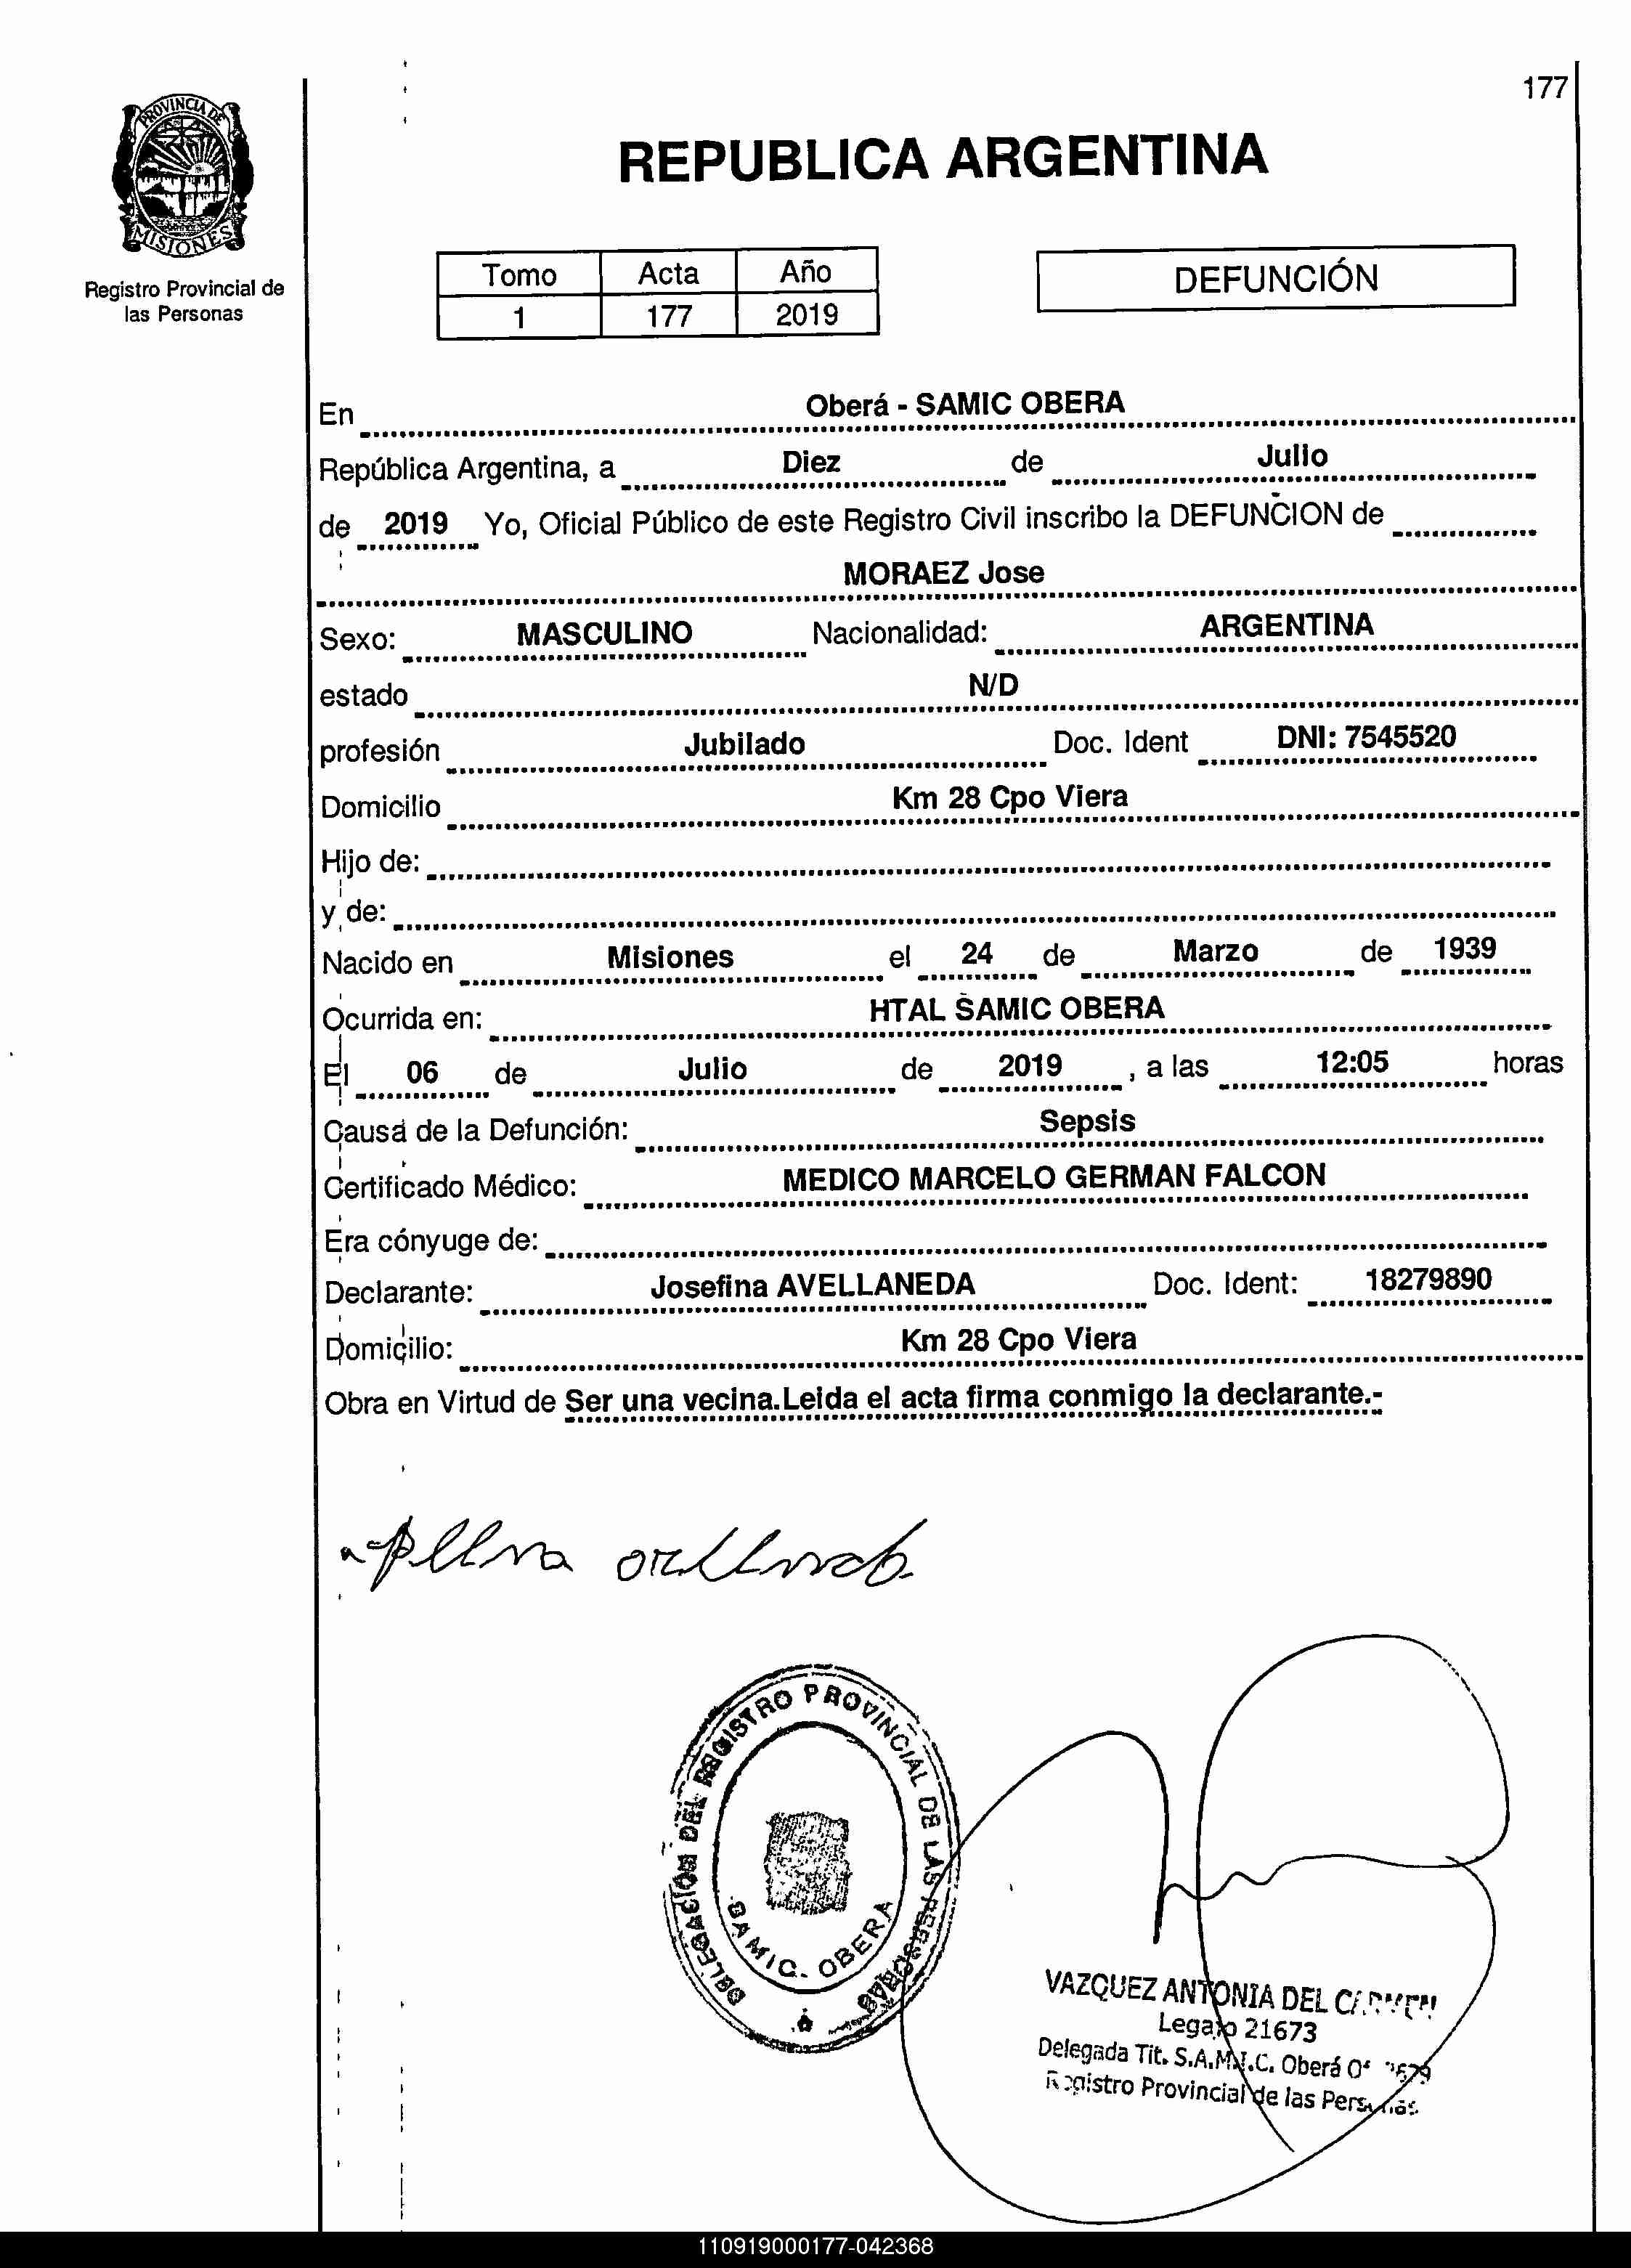 177
PROVINCIA DE
MISIONES
Registro Provincial de
las Personas
REPUBLICA ARGENTINA
Tomo Acta Año
1 177 2019
DEFUNCIÓN
En Oberá - SAMIC OBERA
República Argentina, a Diez de Julio
de 2019 Yo, Oficial Público de este Registro Civil inscribo la DEFUNCION de
MORAEZ Jose
Sexo: MASCULINO Nacionalidad: ARGENTINA
estado N/D
profesión Jubilado Doc. Ident DNI: 7545520
Domicilio Km 28 Cpo Viera
Hijo de:
y de:
Nacido en Misiones el 24 de Marzo de 1939
Ocurrida en: HTAL SAMIC OBERA
El 06 de Julio de 2019 , a las 12:05 horas
Causa de la Defunción: Sepsis
Certificado Médico: MEDICO MARCELO GERMAN FALCON
Era cónyuge de:
Declarante: Josefina AVELLANEDA Doc. Ident: 18279890
Domicilio: Km 28 Cpo Viera
Obra en Virtud de Ser una vecina.Leida el acta firma conmigo la declarante.-
DELEGACION DEL REGISTRO PROVINCIAL DE LAS PERSONAS
SAMIC. OBERA
VAZQUEZ ANTONIA DEL CARMEN
Legajo 21673
Delegada Tit. S.A.M.I.C. Oberá
Registro Provincial de las Personas
110919000177-042368